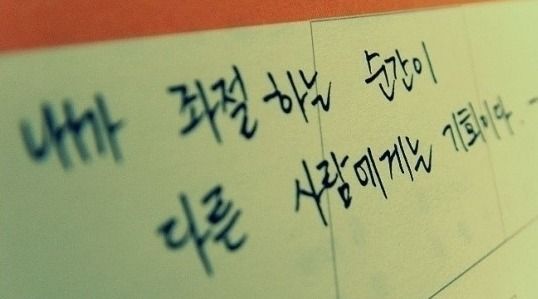 내가 좌절하는 순간이
다른 사람에게는 기회이다.